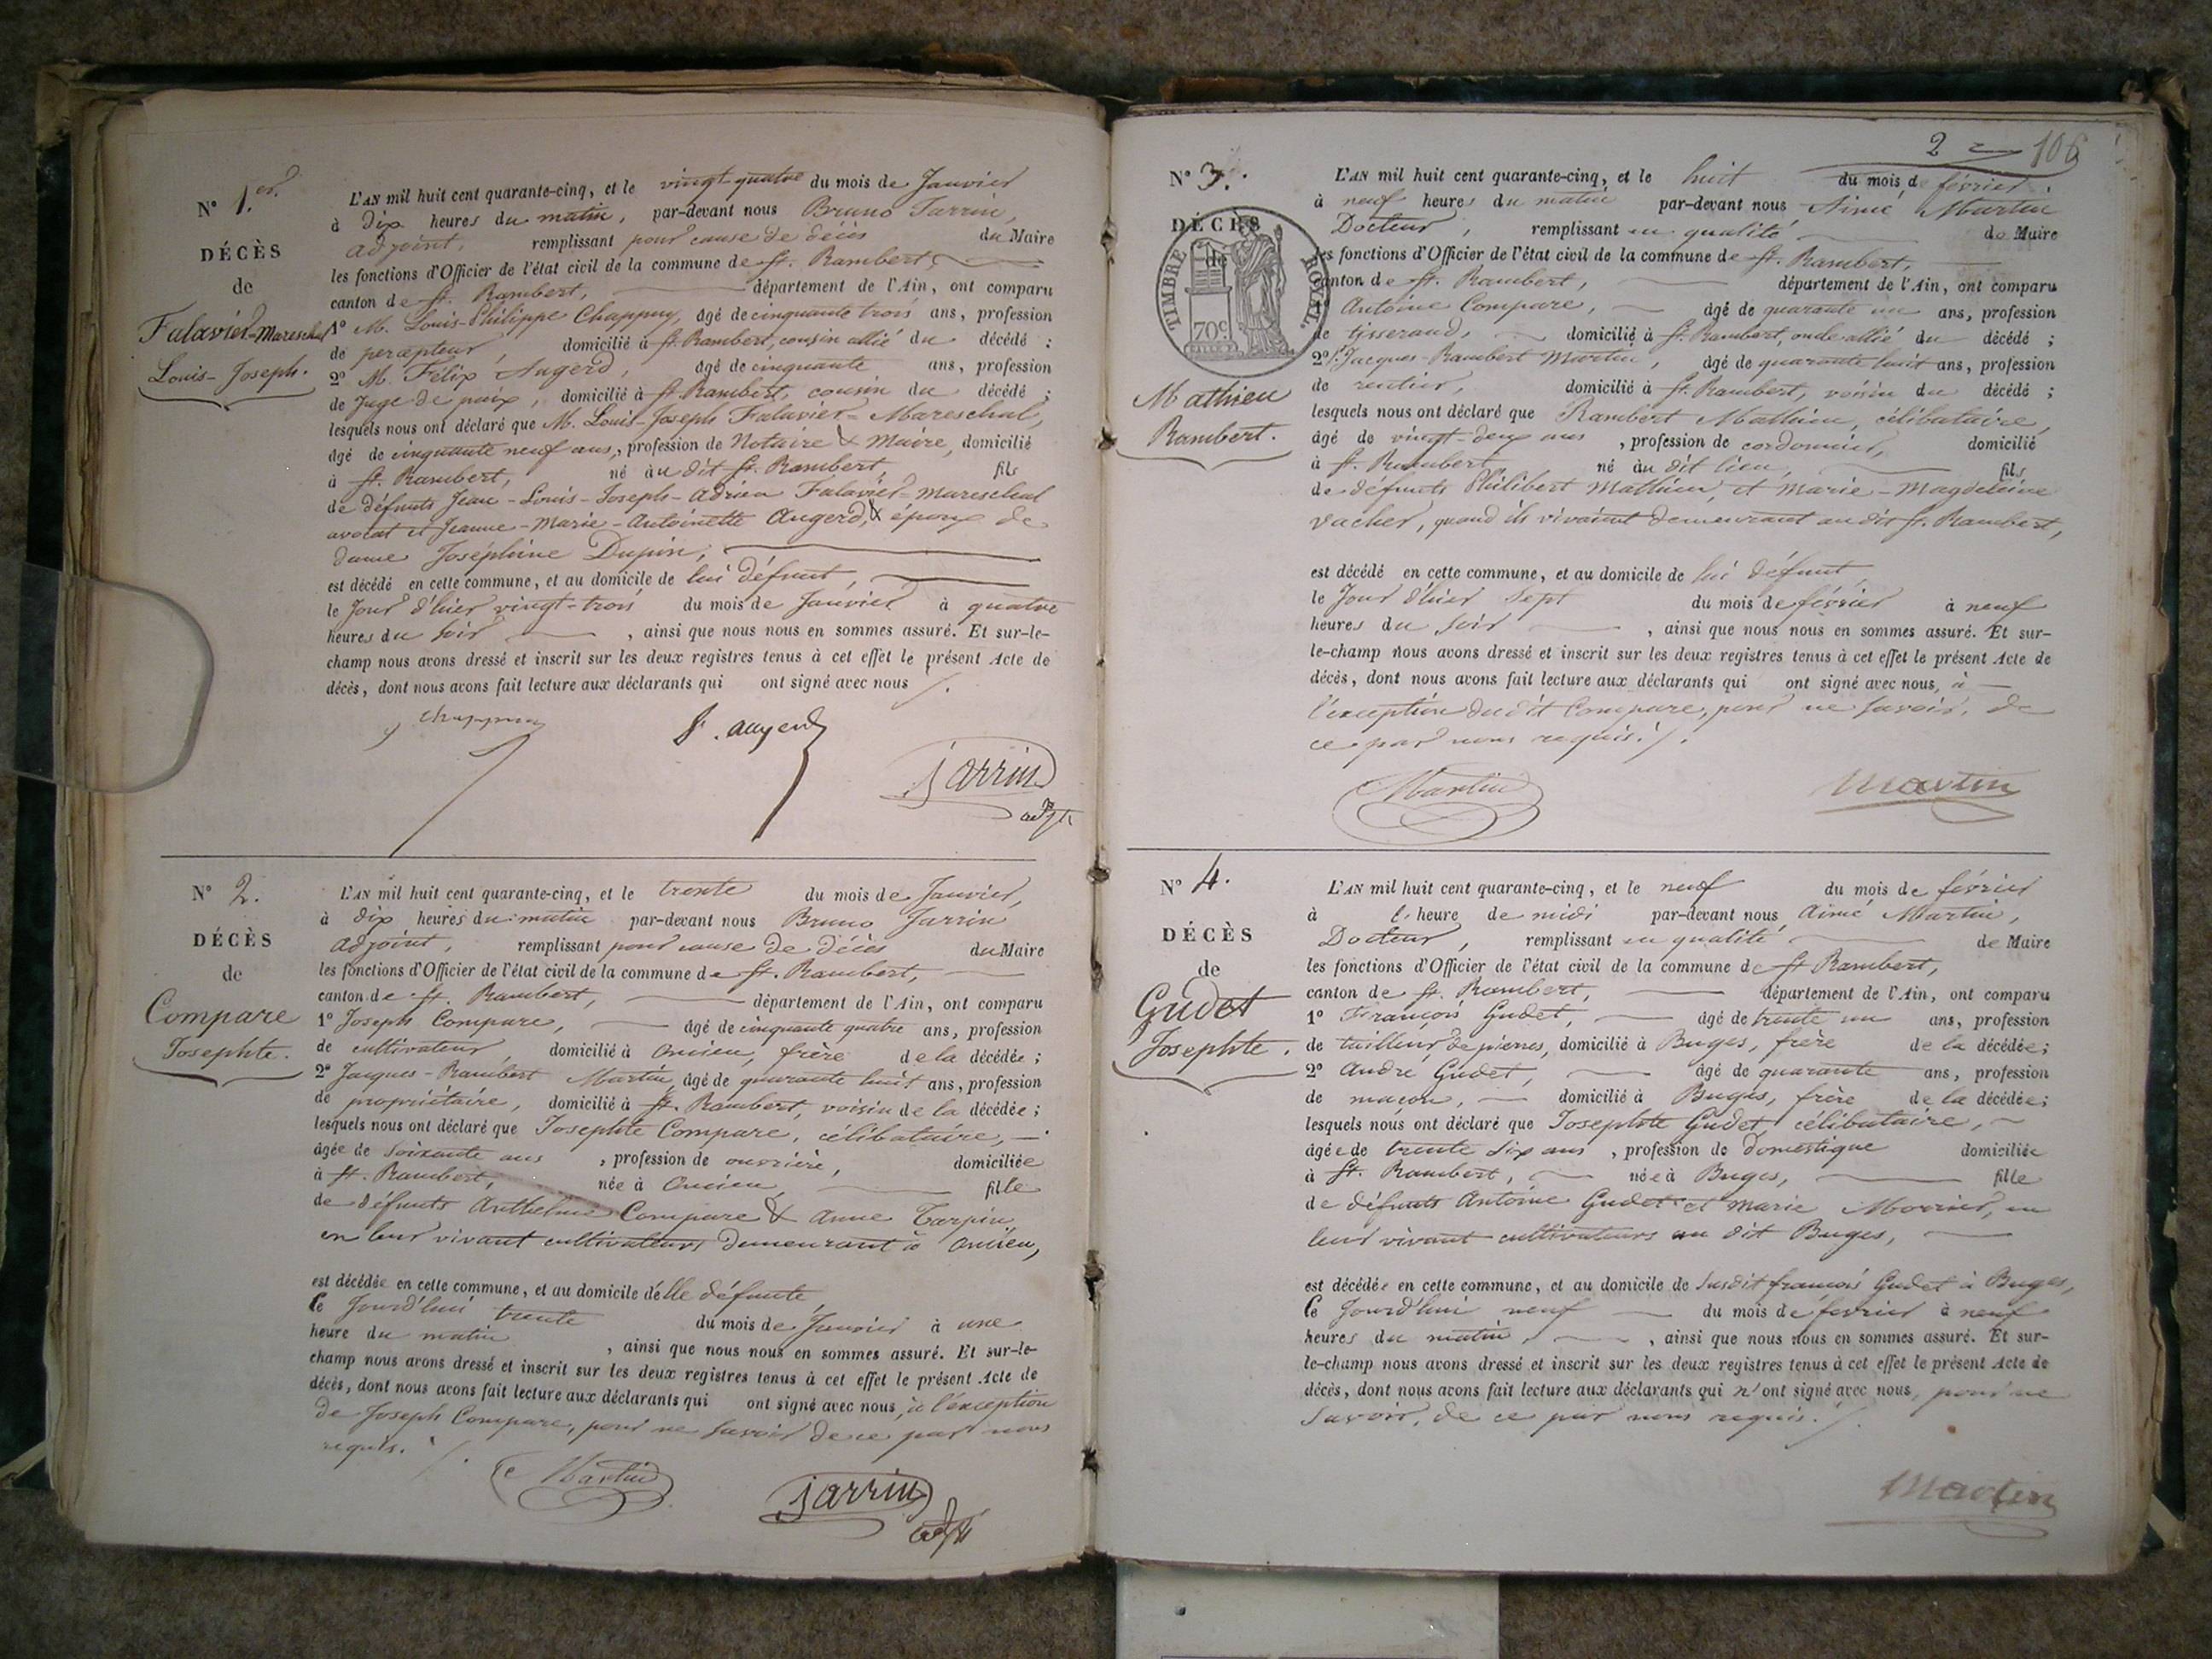 N° 1.er
DÉCÈS
de
Falavier-Mareschal
Louis-Joseph.
L'AN mil huit cent quarante-cinq, et le vingt-quatre du mois de Janvier
à Dix heures du matin, par-devant nous Bruno Jarrin,
adjoint, remplissant pour cause de décès du Maire
les fonctions d'Officier de l'état civil de la commune de St. Rambert,
canton de St. Rambert, département de l'Ain, ont comparu
1° M. Louis-Philippe Chappuy, âgé de cinquante trois ans, profession
de percepteur, domicilié à St. Rambert, cousin allié du décédé ;
2° M. Félix Augerd, âgé de cinquante ans, profession
de Juge de paix, domicilié à St. Rambert, cousin du décédé ;
lesquels nous ont déclaré que M. Louis-Joseph Falavier-Mareschal,
âgé de cinquante neuf ans, profession de Notaire & Maire, domicilié
à St. Rambert, né au dit St. Rambert, fils
de défunts Jean-Louis-Joseph-Adrien Falavier-Mareschal
avocat et Jeanne-Marie-Antoinette Augerd, & époux de
dame Joséphine Dupin ;
est décédé en cette commune, et au domicile de lui défunt,
le Jour d'hier vingt-trois du mois de Janvier à quatre
heures du soir, ainsi que nous nous en sommes assuré. Et sur-le-
champ nous avons dressé et inscrit sur les deux registres tenus à cet effet le présent Acte de
décès, dont nous avons fait lecture aux déclarants qui ont signé avec nous /.
Chappuy
F. Augerd
Jarrin
adjt
N° 2.
DÉCÈS
de
Compare
Josephte.
L'AN mil huit cent quarante-cinq, et le trente du mois de Janvier,
à dix heures du matin par-devant nous Bruno Jarrin
adjoint, remplissant pour cause de décès du Maire
les fonctions d'Officier de l'état civil de la commune de St. Rambert,
canton de St. Rambert, département de l'Ain, ont comparu
1° Joseph Compare, âgé de cinquante quatre ans, profession
de cultivateur, domicilié à Oncieu, frère de la décédée ;
2° Jacques-Rambert Martin, âgé de quarante huit ans, profession
de propriétaire, domicilié à St. Rambert, voisin de la décédée ;
lesquels nous ont déclaré que Josephte Compare, célibataire,
âgée de soixante ans, profession de ouvrière, domiciliée
à St. Rambert, née à Oncieu, fille
de défunts Anthelme Compare & Anne Tarpin
en leur vivant cultivateurs demeurant à Oncieu,
est décédée en cette commune, et au domicile d'elle défunte,
le Jourd'hui trente du mois de Janvier à une
heure du matin, ainsi que nous nous en sommes assuré. Et sur-le-
champ nous avons dressé et inscrit sur les deux registres tenus à cet effet le présent Acte de
décès, dont nous avons fait lecture aux déclarants qui ont signé avec nous, à l'exception
de Joseph Compare, pour ne savoir de ce par nous
requis. /.
Martin
Jarrin
adjt
2 106
N° 3.
DÉCÈS
de
TIMBRE ROYAL.
70c.
Mathieu
Rambert.
L'AN mil huit cent quarante-cinq, et le huit du mois de février,
à neuf heures du matin par-devant nous Aimé Martin
Docteur, remplissant en qualité de Maire
les fonctions d'Officier de l'état civil de la commune de St. Rambert,
canton de St. Rambert, département de l'Ain, ont comparu
1° Antoine Compare, âgé de quarante un ans, profession
de tisserand, domicilié à St. Rambert, oncle allié du décédé ;
2° Jacques-Rambert Martin, âgé de quarante huit ans, profession
de rentier, domicilié à St. Rambert, voisin du décédé ;
lesquels nous ont déclaré que Rambert Mathieu, célibataire,
âgé de vingt-deux ans, profession de cordonnier, domicilié
à St. Rambert né au dit lieu, fils
de défunts Philibert Mathieu, et Marie-Magdeleine
Vacher, quand ils vivaient demeurant au dit St. Rambert,
est décédé en cette commune, et au domicile de lui défunt,
le Jour d'hier sept du mois de février à neuf
heures du soir, ainsi que nous nous en sommes assuré. Et sur-
le-champ nous avons dressé et inscrit sur les deux registres tenus à cet effet le présent Acte de
décès, dont nous avons fait lecture aux déclarants qui ont signé avec nous, à
l'exception dudit Compare, pour ne savoir, de
ce par nous requis. /.
Martin
Martin
N° 4.
DÉCÈS
de
Gudet
Josephte.
L'AN mil huit cent quarante-cinq, et le neuf du mois de février
à l'heure de midi par-devant nous Aimé Martin,
Docteur, remplissant en qualité de Maire
les fonctions d'Officier de l'état civil de la commune de St Rambert,
canton de St. Rambert, département de l'Ain, ont comparu
1° François Gudet, âgé de trente un ans, profession
de tailleur de pierres, domicilié à Buges, frère de la décédée ;
2° André Gudet, âgé de quarante ans, profession
de maçon, domicilié à Buges, frère de la décédée ;
lesquels nous ont déclaré que Josephte Gudet, célibataire,
âgée de trente six ans, profession de domestique domiciliée
à St. Rambert, née à Buges, fille
de défunts Antoine Gudet et Marie Morrier, en
leur vivant cultivateurs au dit Buges,
est décédée en cette commune, et au domicile de susdit françois Gudet à Buges,
le Jourd'hui neuf du mois de février à neuf
heures du matin, ainsi que nous nous en sommes assuré. Et sur-
le-champ nous avons dressé et inscrit sur les deux registres tenus à cet effet le présent Acte de
décès, dont nous avons fait lecture aux déclarants qui n'ont signé avec nous, pour ne
savoir, de ce par nous requis. /.
Martin